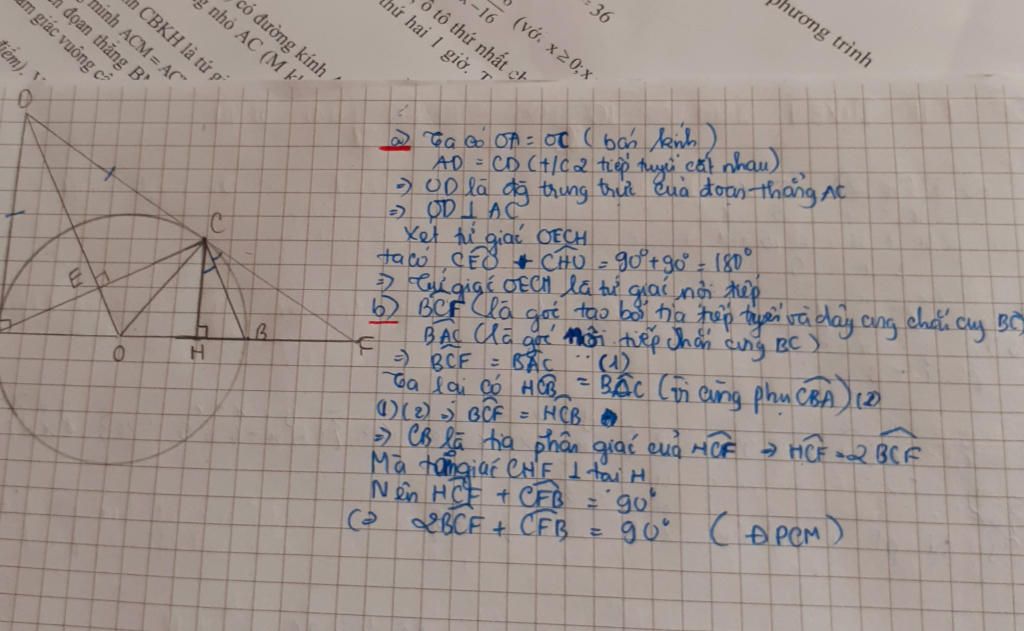 in CBKH là tứ gi
minh ACM = AC
đoạn thẳng B
am giác vuông c
điểm).
có đường kính
g nhỏ AC (M k
x-16
(với x ≥ 0; x
= 36
ô tô thứ nhất ch
thứ hai 1 giờ. T
phương trình
a) Ta có OA = OC (bán kính)
AD = CD (t/c 2 tiếp tuyến cắt nhau)
⇒ OD là đg trung trực của đoạn thẳng AC
⇒ OD ⊥ AC
Xét tứ giác OECH
ta có CEO + CHO = 90° + 90° = 180°
⇒ Tứ giác OECH là tứ giác nội tiếp
b) BCF (là góc tạo bởi tia tiếp tuyến và dây cung chắn cung BC)
BAC (là góc nội tiếp chắn cung BC)
⇒ BCF = BAC (1)
Ta lại có HCB = BAC (vì cùng phụ CBA) (2)
(1)(2) ⇒ BCF = HCB
⇒ CB là tia phân giác của HCF ⇒ HCF = 2 BCF
Mà tam giác CHF ⊥ tại H
Nên HCF + CFB = 90°
(⇒ 2BCF + CFB = 90° (ĐPCM)
D
C
E
O
H
B
F